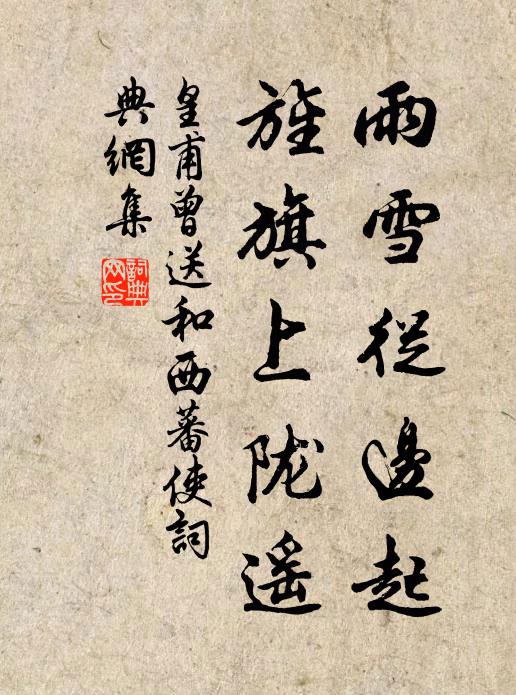 雨雪從邊起
旌旗上陇遥
皇甫曾送和西蕃使詞
典網集
詞典
网印